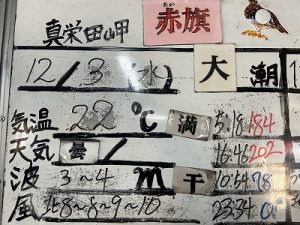 真栄田岬 赤旗
あか
12/3(水) 大潮
気温 22℃ 満 5:18 184
天気 曇 / 16:46 202
波 3~4m 干 10:54 78
風 北8~8~9~10 23:34 0